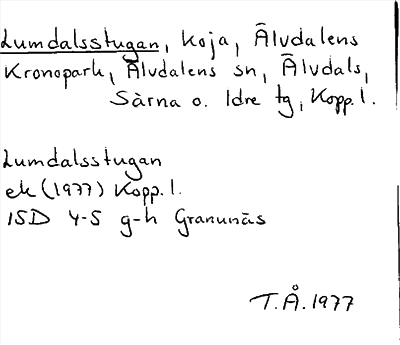 Lumdalsstugan, koja, Älvdalens
Kronopark, Älvdalens sn, Älvdals,
Särna o. Idre tg, Kopp.l.
Lumdalsstugan
ek (1977) Kopp.l.
15D 4-5 g-h Granunäs
T.Å.1977